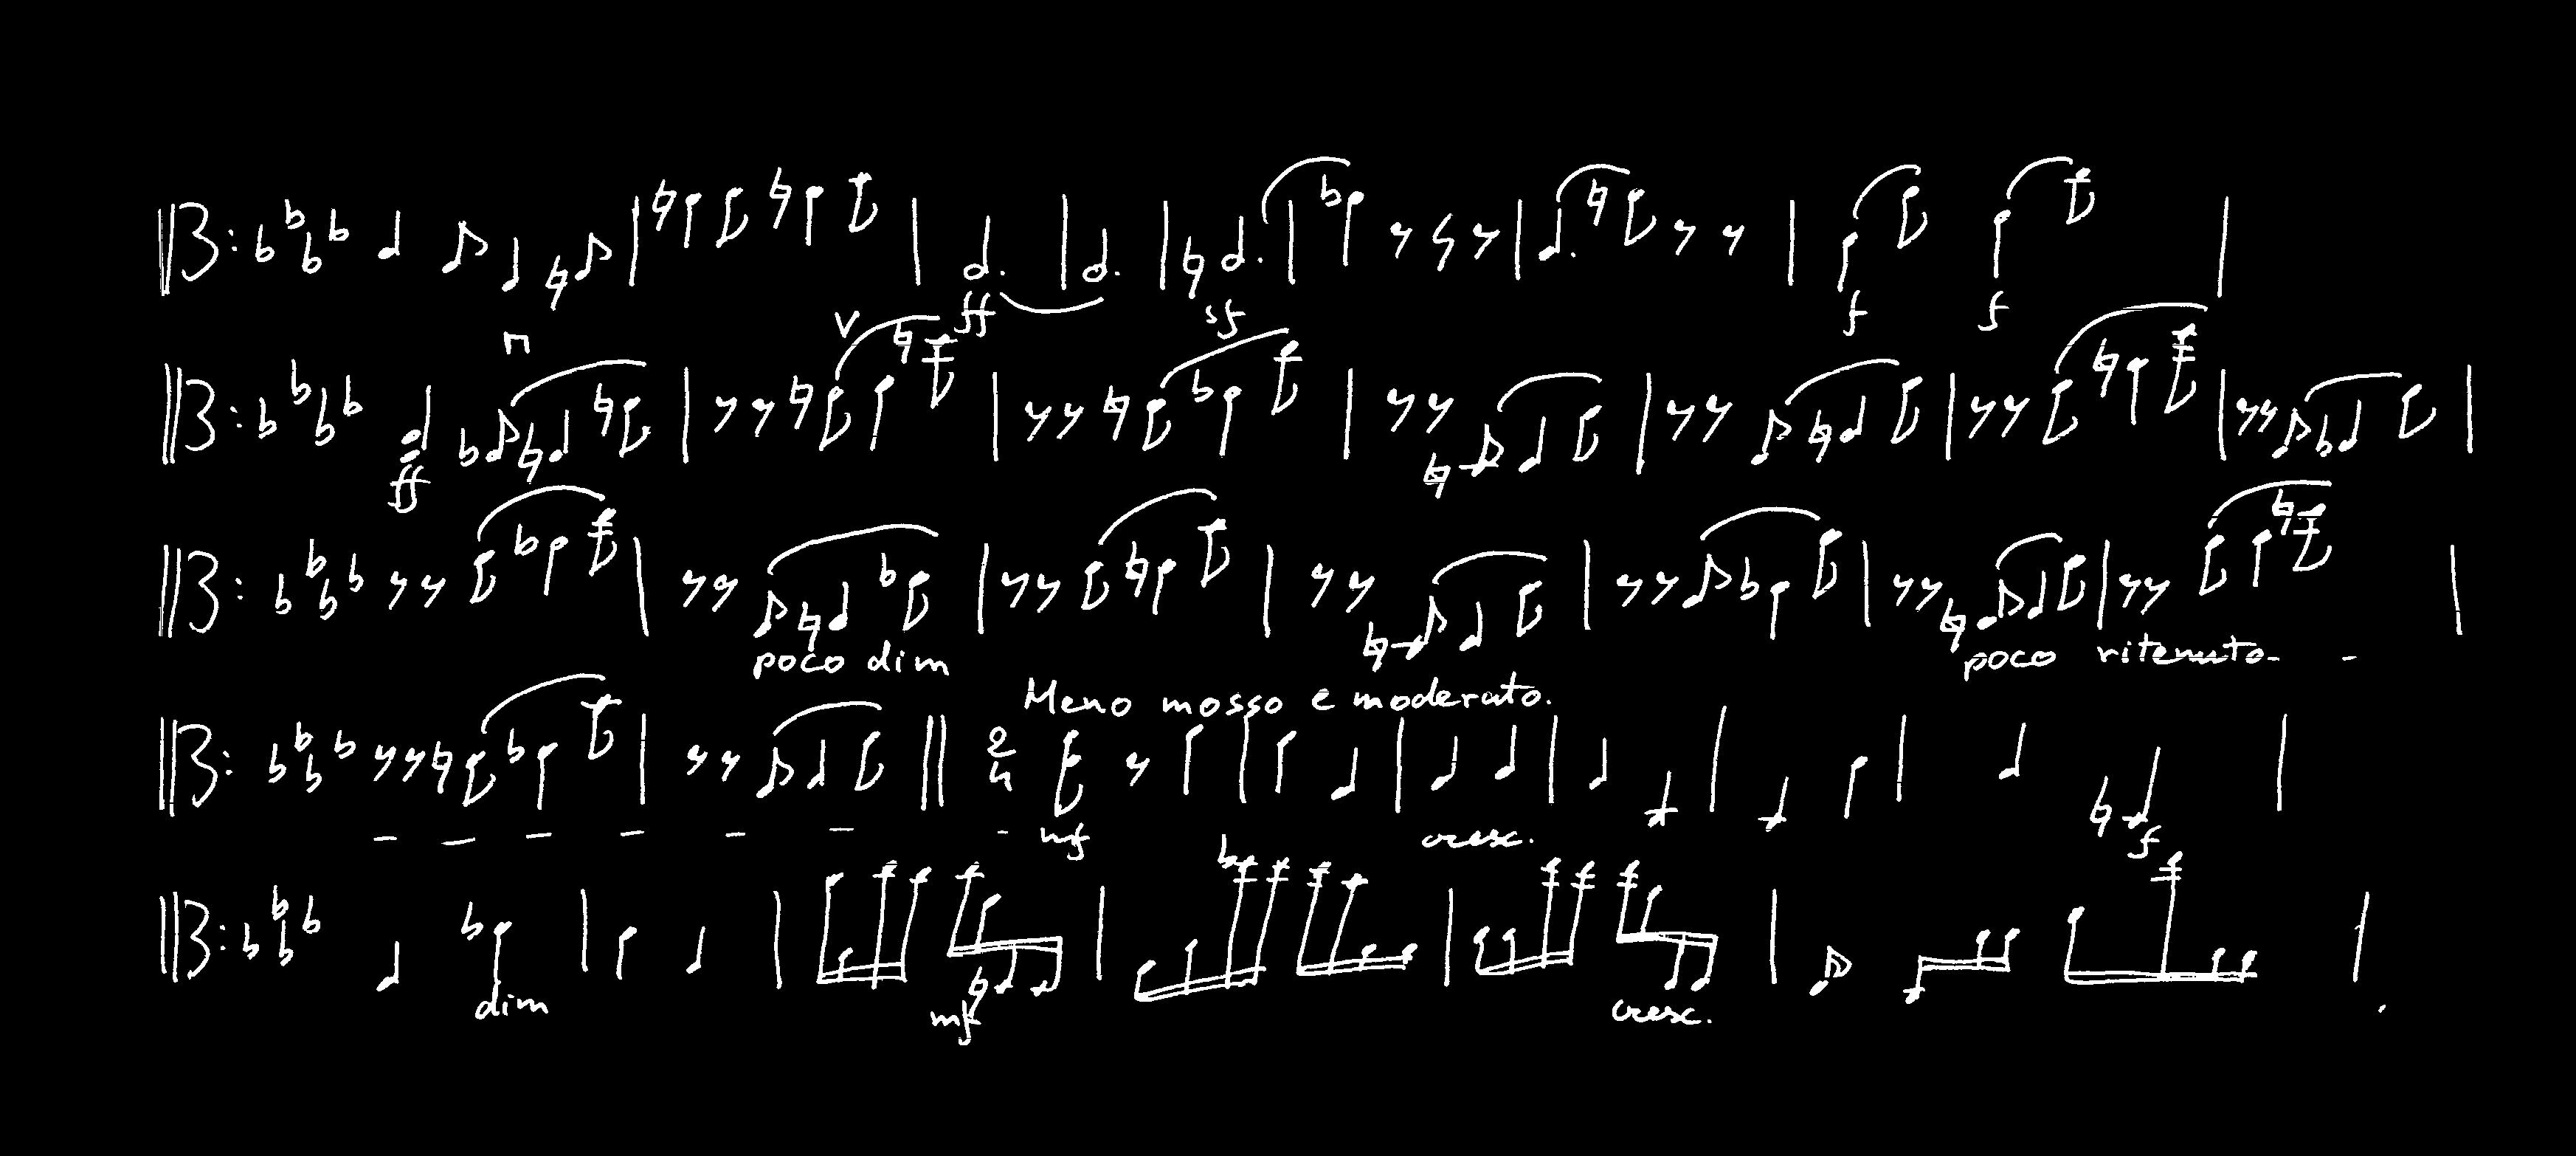 ff sf f f
n V
ff
poco dim poco ritenuto
Meno mosso e moderato.
2
4
mf cresc. f
dim mf cresc.